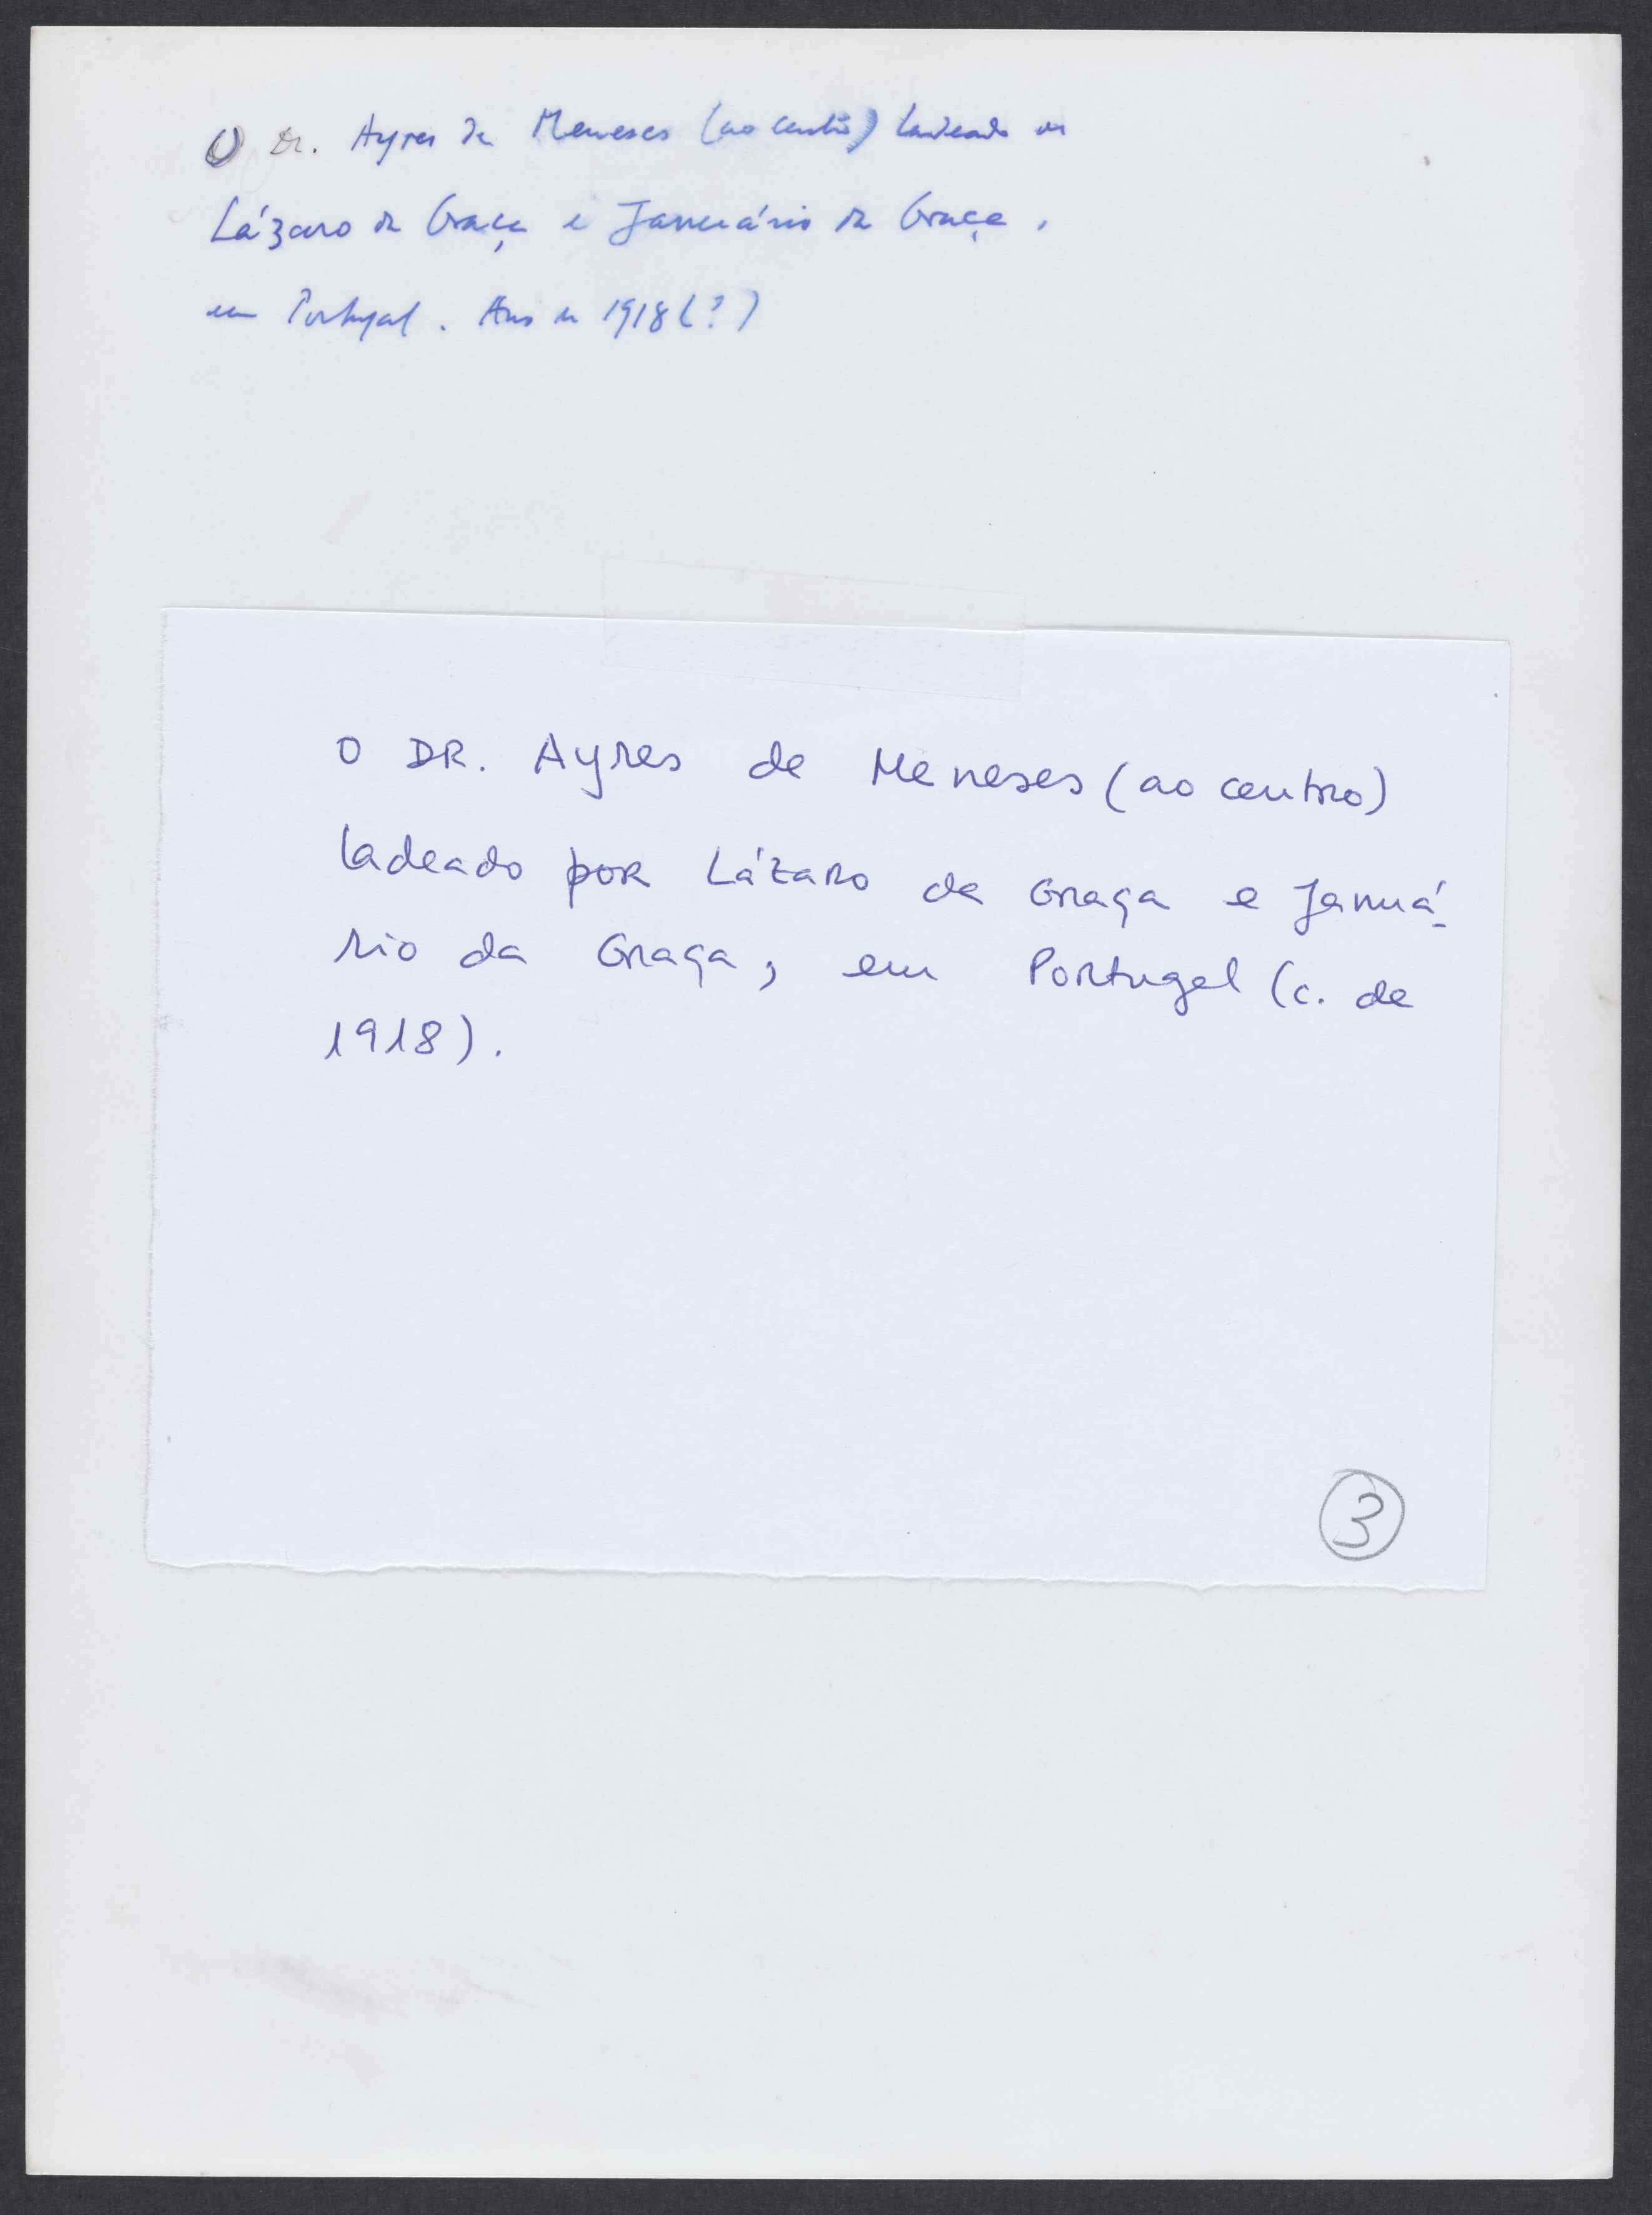 O Dr. Ayres de Meneses (ao centro) ladeado de
Lázaro da Graça e Januário da Graça,
em Portugal. Ano de 1918 (?)
O DR. Ayres de Meneses (ao centro)
ladeado por Lázaro da Graça e Januá-
rio da Graça, em Portugal (c. de
1918).
3